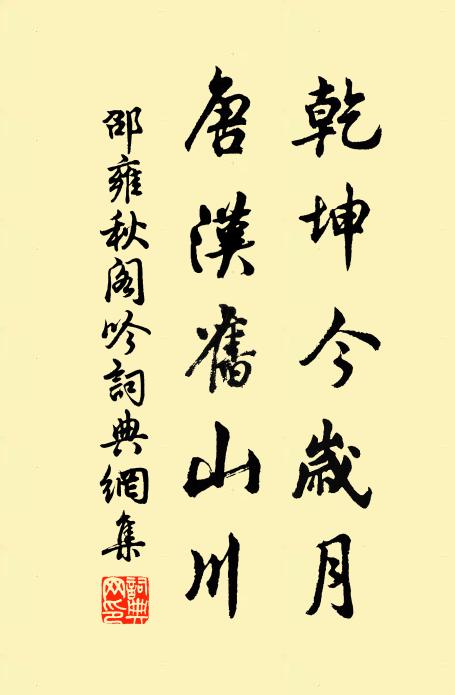 乾坤今歲月
唐漢舊山川
邵雍秋閣吟詞典網集
詞典网印